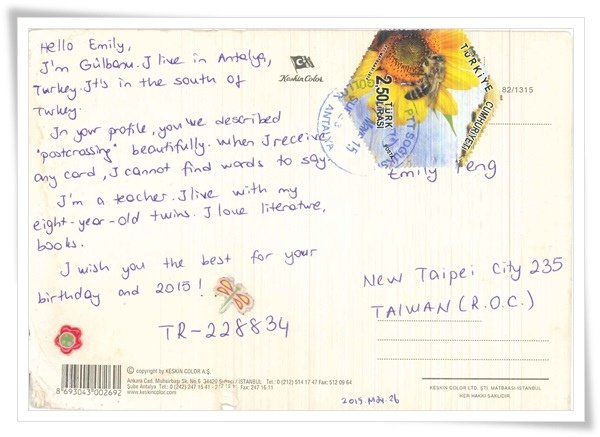 Hello Emily,
I'm Gülbanu. I live in Antalya,
Turkey. It's in the south of
Turkey.
In your profile, you've described
"postcrossing" beautifully. When I receive
any card, I cannot find words to say.
I'm a teacher. I live with my
eight-year-old twins. I love literature,
books.
I wish you the best for your
birthday and 2015!
TR-228834
Keskin Color
TÜRKİYE CUMHURİYETİ
2.50 TÜRK LİRASI
PTT
ANTALYA
15
82/1315
Emily Peng
New Taipei City 235
TAIWAN (R.O.C.)
8 693043 002692
© copyright by KESKİN COLOR A.Ş.
Ankara Cad. No.6 34420 / İSTANBUL Tel.: 0 (212) 514 17 47 Fax: 512 09 64
Şube Antalya Tel.: 0 (242) 247 15 41 - Fax: 247 16 11
www.keskincolor.com
KESKİN COLOR LTD. ŞTİ. MATBAASI-İSTANBUL
HER HAKKI SAKLIDIR.
2015. Mar. 26